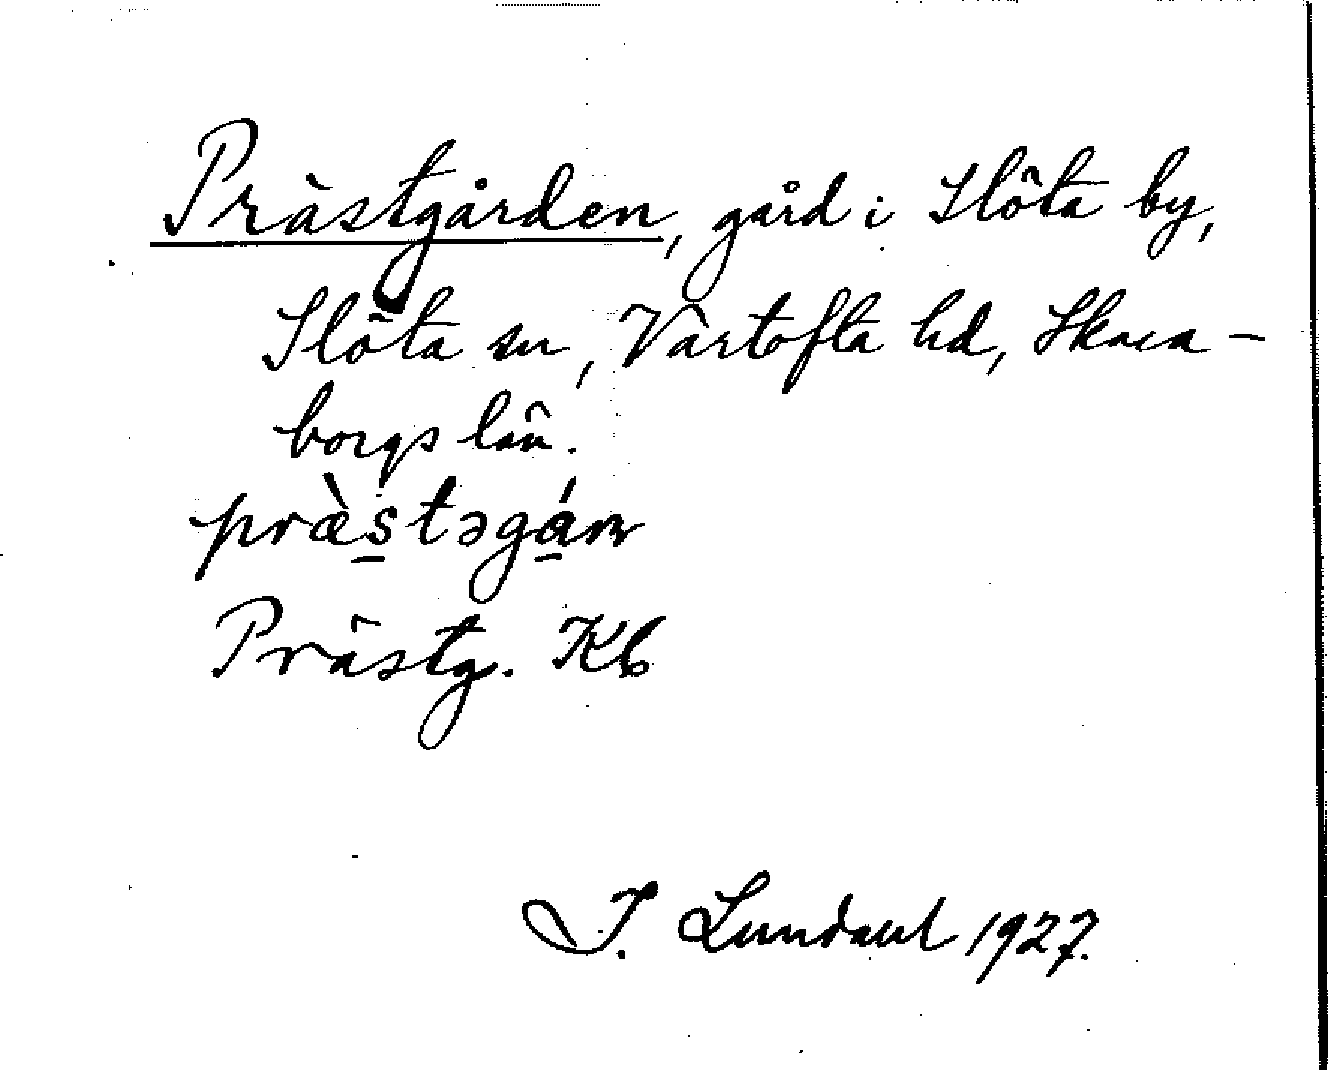 Prästgården, gård i Slöta by,
Slöta sn, Vartofta hd, Skara-
borgs län.
præ̀s̱təgá̱ɳ
Prästg. Kb
J. Lundahl 1927.